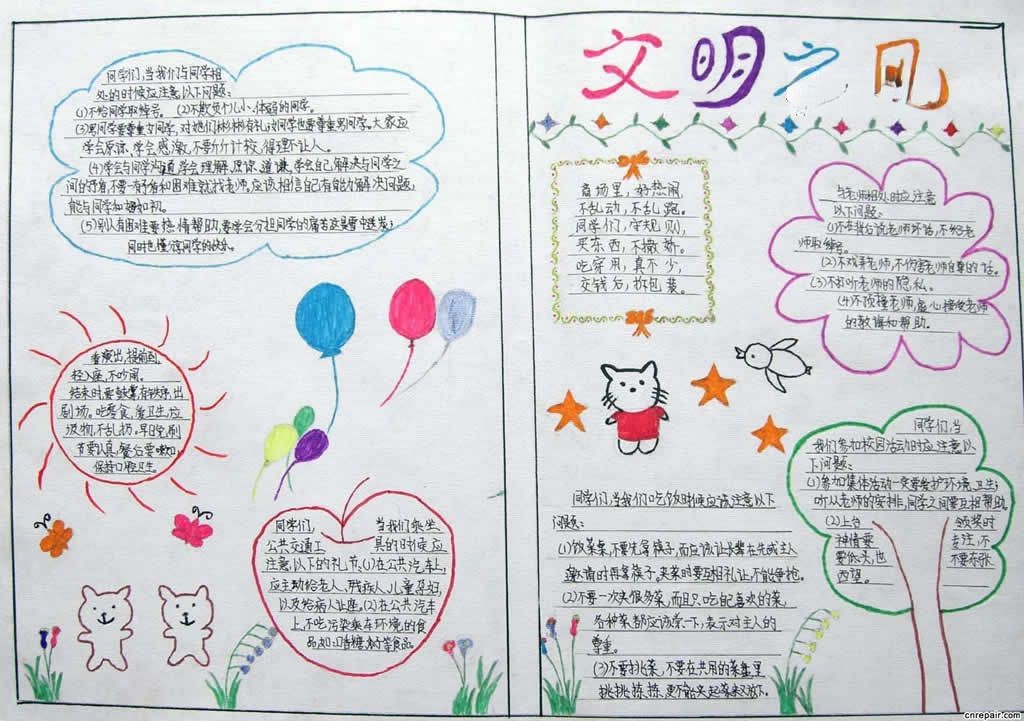 文明之风
同学们,当我们与同学相
处的时候应注意以下问题:
(1)不给同学取绰号。(2)不欺负个儿小、体弱的同学。
(3)男同学要尊重女同学,对她们彬彬有礼,女同学也要尊重男同学。大家应
学会原谅,学会感激,不要斤斤计较,得理不让人。
(4)学会与同学沟通,学会理解、原谅、道谦,学会自己解决与同学之
间的矛盾,不要一有矛盾和困难就找老师,应该相信自己有能力解决问题,
能与同学和好如初。
(5)别人有困难要热情帮助,要学会分担同学的痛苦
同时也懂分享同学的快乐。
看演出,提前到,
轻入座,不吵闹。
结束时要鼓掌,有秩序,出
剧场。吃零食,爱卫生,垃
圾物,不乱扔。早晚,刷
牙要认真,餐后要嗽口,
保持口腔卫生。
同学们,当我们乘坐
公共交通工具的时候,应
注意以下的礼节:(1)在公共汽车上,
应主动给老人、残疾人、儿童、孕妇,
以及给病人让座。(2)在公共汽车
上,不吃污染乘车环境的食
品,如:口香糖、烧烤等食品。
商场里,好热闹,
不乱动,不乱跑。
同学们,守规则,
买东西,不撒娇。
吃穿用,真不少,
交钱后,拆包装。
与老师相处时应注意
以下问题:
(1)不在背后说老师坏话,不给老
师取绰号。
(2)不戏弄老师,不伤害老师自尊的话。
(3)不打听老师的隐私。
(4)不顶撞老师,虚心接受老师
的教诲和帮助。
同学们,当我们吃饭时候应该注意以下
问题:
(1)饭菜来,不要先拿筷子,而应该让长辈在先或主人
邀请时再拿筷子。夹菜时要互相礼让,不能争抢。
(2)不要一次夹很多菜,而且只吃自己喜欢的菜,
各种菜都应该尝一下,表示对主人的
尊重。
(3)不要挑菜,不要在共用的菜盘里
挑挑拣拣,更不能夹起菜来又放下。
同学们,当
我们参加校园活动时应注意以
下问题:
(1)参加集体活动一定要爱护环境卫生;
听从老师的安排,同学之间要互相帮助
(2)上台领奖时
神情要专注,不
要低头,也不要东张
西望。
cnrepair.com